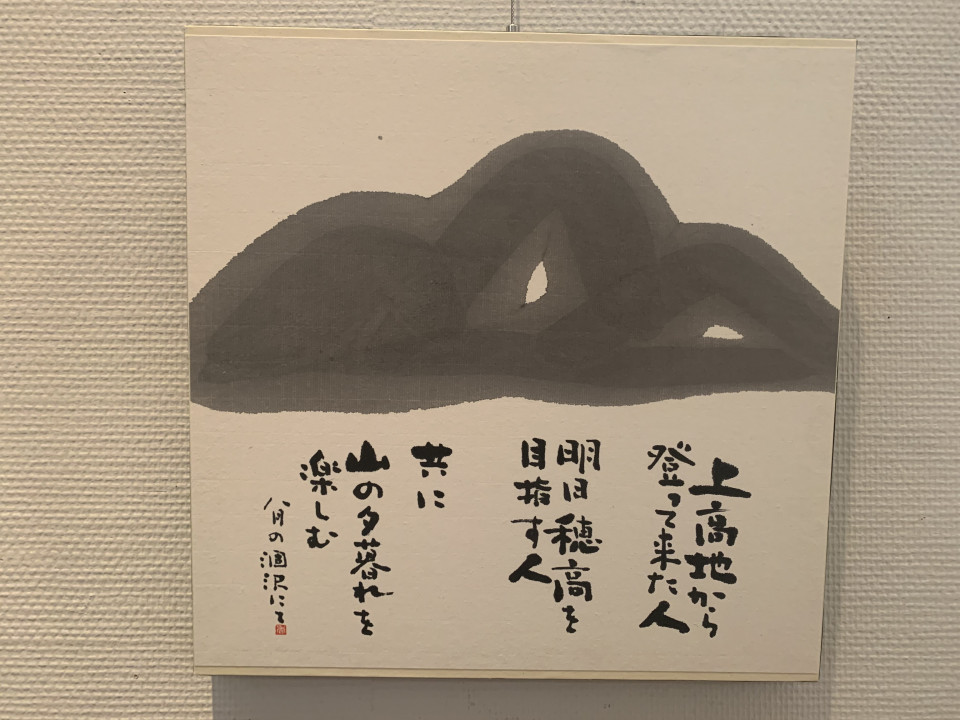 上高地から
登って来た人
明日穂高を
目指す人
共に
山の夕暮れを
楽しむ
八月の涸沢にて